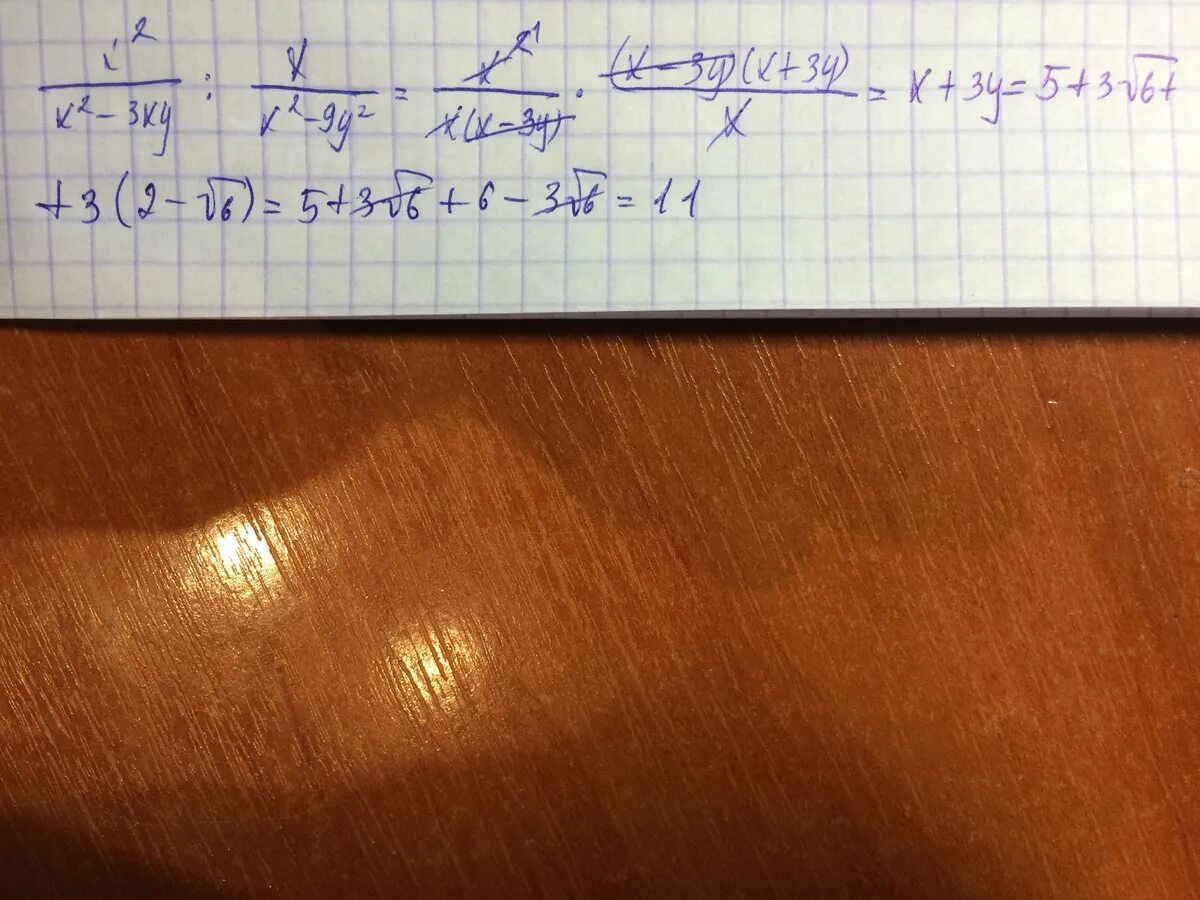 x² / (x² - 3xy) : x / (x² - 9y²) = x² / (x(x - 3y)) · (x - 3y)(x + 3y) / x = x + 3y = 5 + 3√6 +
+ 3(2 - √6) = 5 + 3√6 + 6 - 3√6 = 11